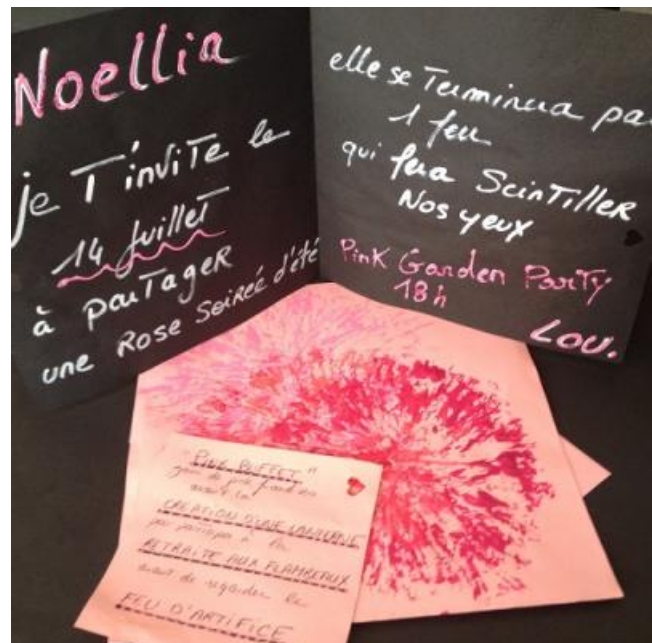 Noellia
je T'invite le
14 Juillet
à partager
une Rose Soireé d'été
elle se Terminera pa
1 feu
qui fera ScinTiller
Nos yeux
Pink Garden Party
18h
Lou.
"PINK BUFFET"
avant la
CREATION D'UNE LANTERNE
participer à la
RETRAITE AUX FLAMBEAUX
avant de regarder le
FEU D'ARTIFICE